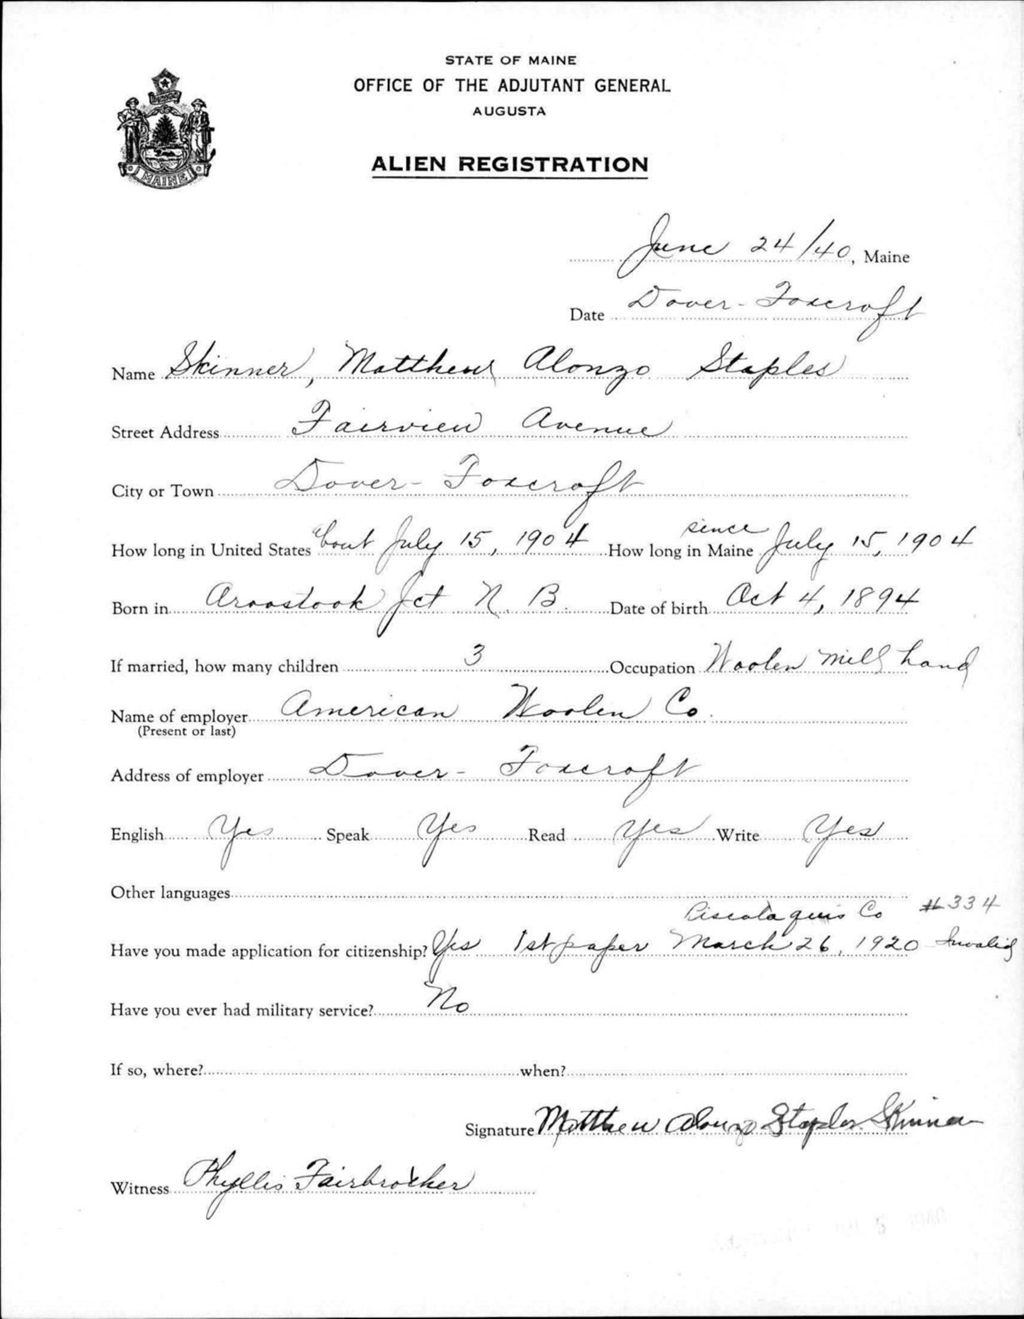 STATE OF MAINE
OFFICE OF THE ADJUTANT GENERAL
AUGUSTA
MAINE
ALIEN REGISTRATION
June 24/40, Maine
Date Dover-Foxcroft
Name Skinner, Matthew Alonzo Staples
Street Address Fairview Avenue
City or Town Dover-Foxcroft
How long in United States 'bout July 15, 1904 How long in Maine since July 15, 1904
Born in Aroostook Jct N. B. Date of birth Oct 4, 1894
If married, how many children 3 Occupation Woolen mill hand
Name of employer American Woolen Co.
(Present or last)
Address of employer Dover-Foxcroft
English Yes Speak Yes Read Yes Write Yes
Other languages
Piscataquis Co #334
Have you made application for citizenship? Yes 1st paper March 26, 1920 Invalid
Have you ever had military service? No
If so, where? when?
Signature Matthew Alonzo Staples Skinner
Witness Phyllis Fairbrother